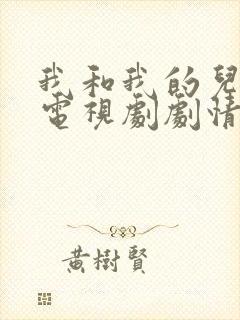 我和我的兒
電視劇劇情
黃樹賢